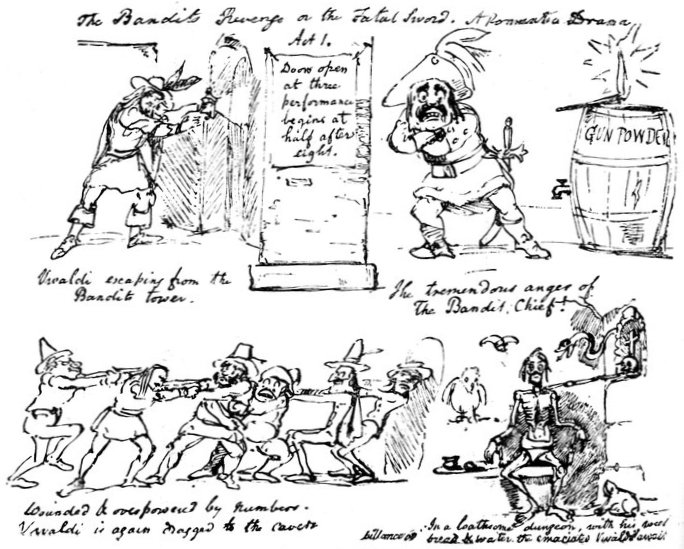 The Bandits Revenge or the Fatal Sword. A Romantic Drama
Act 1.
Doors open
at three
performance
begins at
half after
eight.
GUNPOWDER
Vivaldi escaping from the
Bandits tower.
The tremendous anger of
The Bandit Chief!
Wounded & overpowered by numbers.
Vivaldi is again dragged to the cavern
In a loathsome dungeon, with his
bread & water, the emaciated Vivaldi